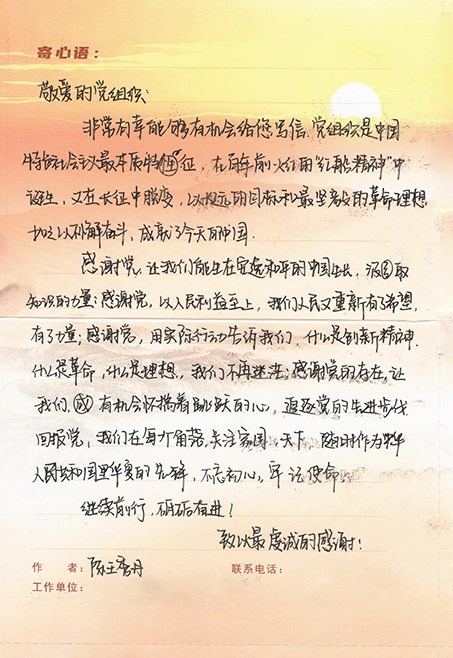 寄心语：
敬爱的党组织：
非常有幸能够有机会给您写信，党组织是中国
特色社会主义最本质特性征，在百年前火红的"红船精神"中
诞生，又在长征中脱变，以伟大的目标和最坚定的革命理想，
加之以不懈奋斗，成就了今天的中国．
感谢党，让我们能生在安定和平的中国生长，汲取
知识的力量；感谢党，以人民利益至上，我们人民又重新有了希望，
有了力量；感谢党，用实际行动告诉我们，什么是创新精神，
什么是革命，什么是理想，我们不再迷茫；感谢党的存在，让
我们 有机会怀揣着跳跃的心，追逐党的先进步伐
回报党，我们在每个角落，关注家国、天下，随时作为中华
人民共和国 的先锋，不忘初心，牢记使命．
继续前行，砥砺奋进！
致以最虔诚的感谢！
作 者： 丹 联系电话：
工作单位：